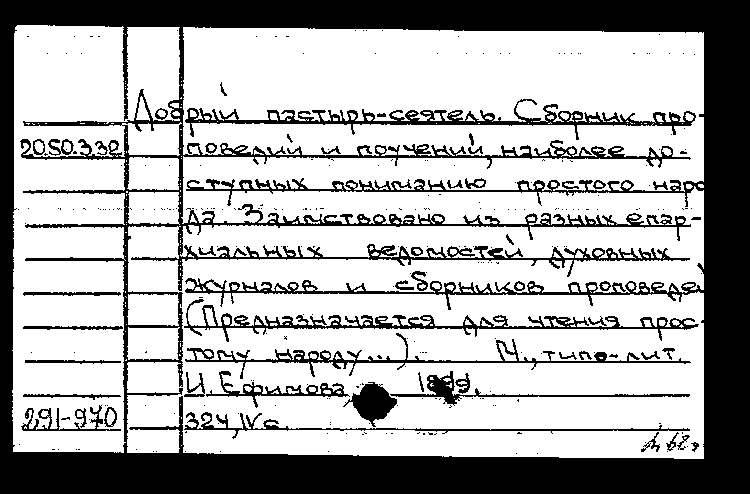 Добрый пастырь-сеятель. Сборник про-
20.50.3.32 поведий и поучений, наиболее до-
ступных пониманию простого наро
да. Заимствовано из разных епар-
хиальных ведомостей, духовных
журналов и сборников проповедей
(Предназначается для чтения прос-
тому народу...). М., типо-лит.
И. Ефимова 1899.
2,91-970 324, IV с.